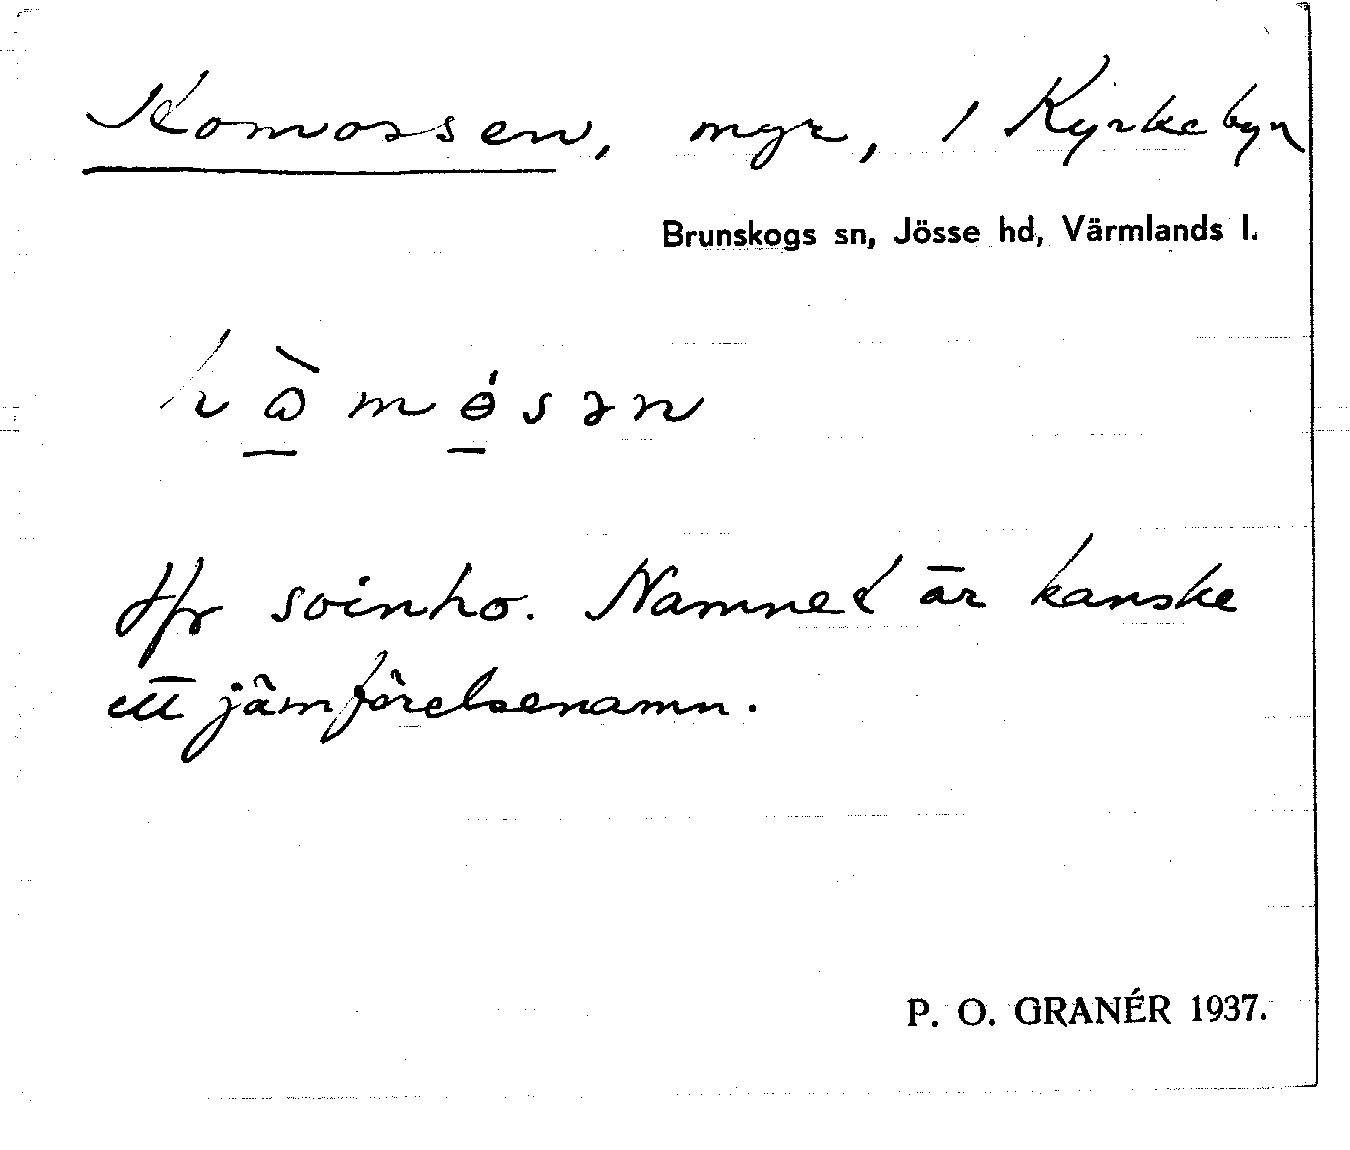 Komossen, myr, 1 Kyrkebyn
Brunskogs sn, Jösse hd, Värmlands l.
Jfr svinho. Namnet är kanske
ett jämförelsenamn.
P. O. GRANÉR 1937.